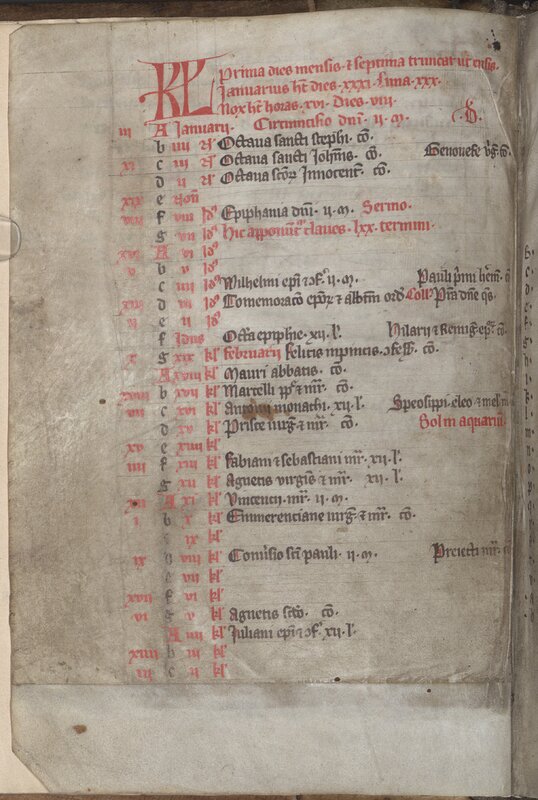 KL Prima dies mensis · & septima truncat ut ensis ·
Januarius ht dies · xxxi · Luna · xxx ·
Nox ht horas · xvi · Dies · viii ·
iii A Januarii · Circuncisio dni · ii · m ·
b iiii Octava sancti Stephi · co · Genovefe virg · co ·
xi c iii Octava sancti Johnis · co ·
d ii Octava scor Innocent · co ·
xix e Non
viii f viii Id Epiphania dni · ii · m · Sermo ·
g vii Id hic apponunt claves · lxx · termini ·
xvi A vi Id
v b v Id
c iiii Id Wilhelmi epi & cf · ii · m · Pauli primi herem · c
xiii d iii Id Comemoraco epor & abbm ord Coll Pta dne qs ·
ii e ii Id
f Idus Octa epiphie · xii · l · hilarii & Remig epor · co ·
x g xix kl februarii felicis inpincis · cfess · co ·
A xviii kl Mauri abbatis · co ·
xviii b xvii kl Marcelli pp & mr · co ·
vii c xvi kl Antonii monachi · xii · l · Speosippi · eleo · & mel
d xv kl Prisce virg & mr · co · Sol in aquariu
xv e xiiii kl
iiii f xiii kl fabiani & sebastiani mr · xii · l ·
g xii kl Agnetis virginis & mr · xii · l ·
xii A xi kl Vincencii · mr · ii · m ·
i b x kl Emerenciane virg & mr · co ·
ix kl
ix viii kl Convsio sti pauli · ii · m · Proiecti mr ·
e vii kl
xvii f vi kl
vi g v kl Agnetis scdo · co ·
A iiii kl Juliani epi & cf · xii · l ·
xiiii b iii kl
iii c ii kl